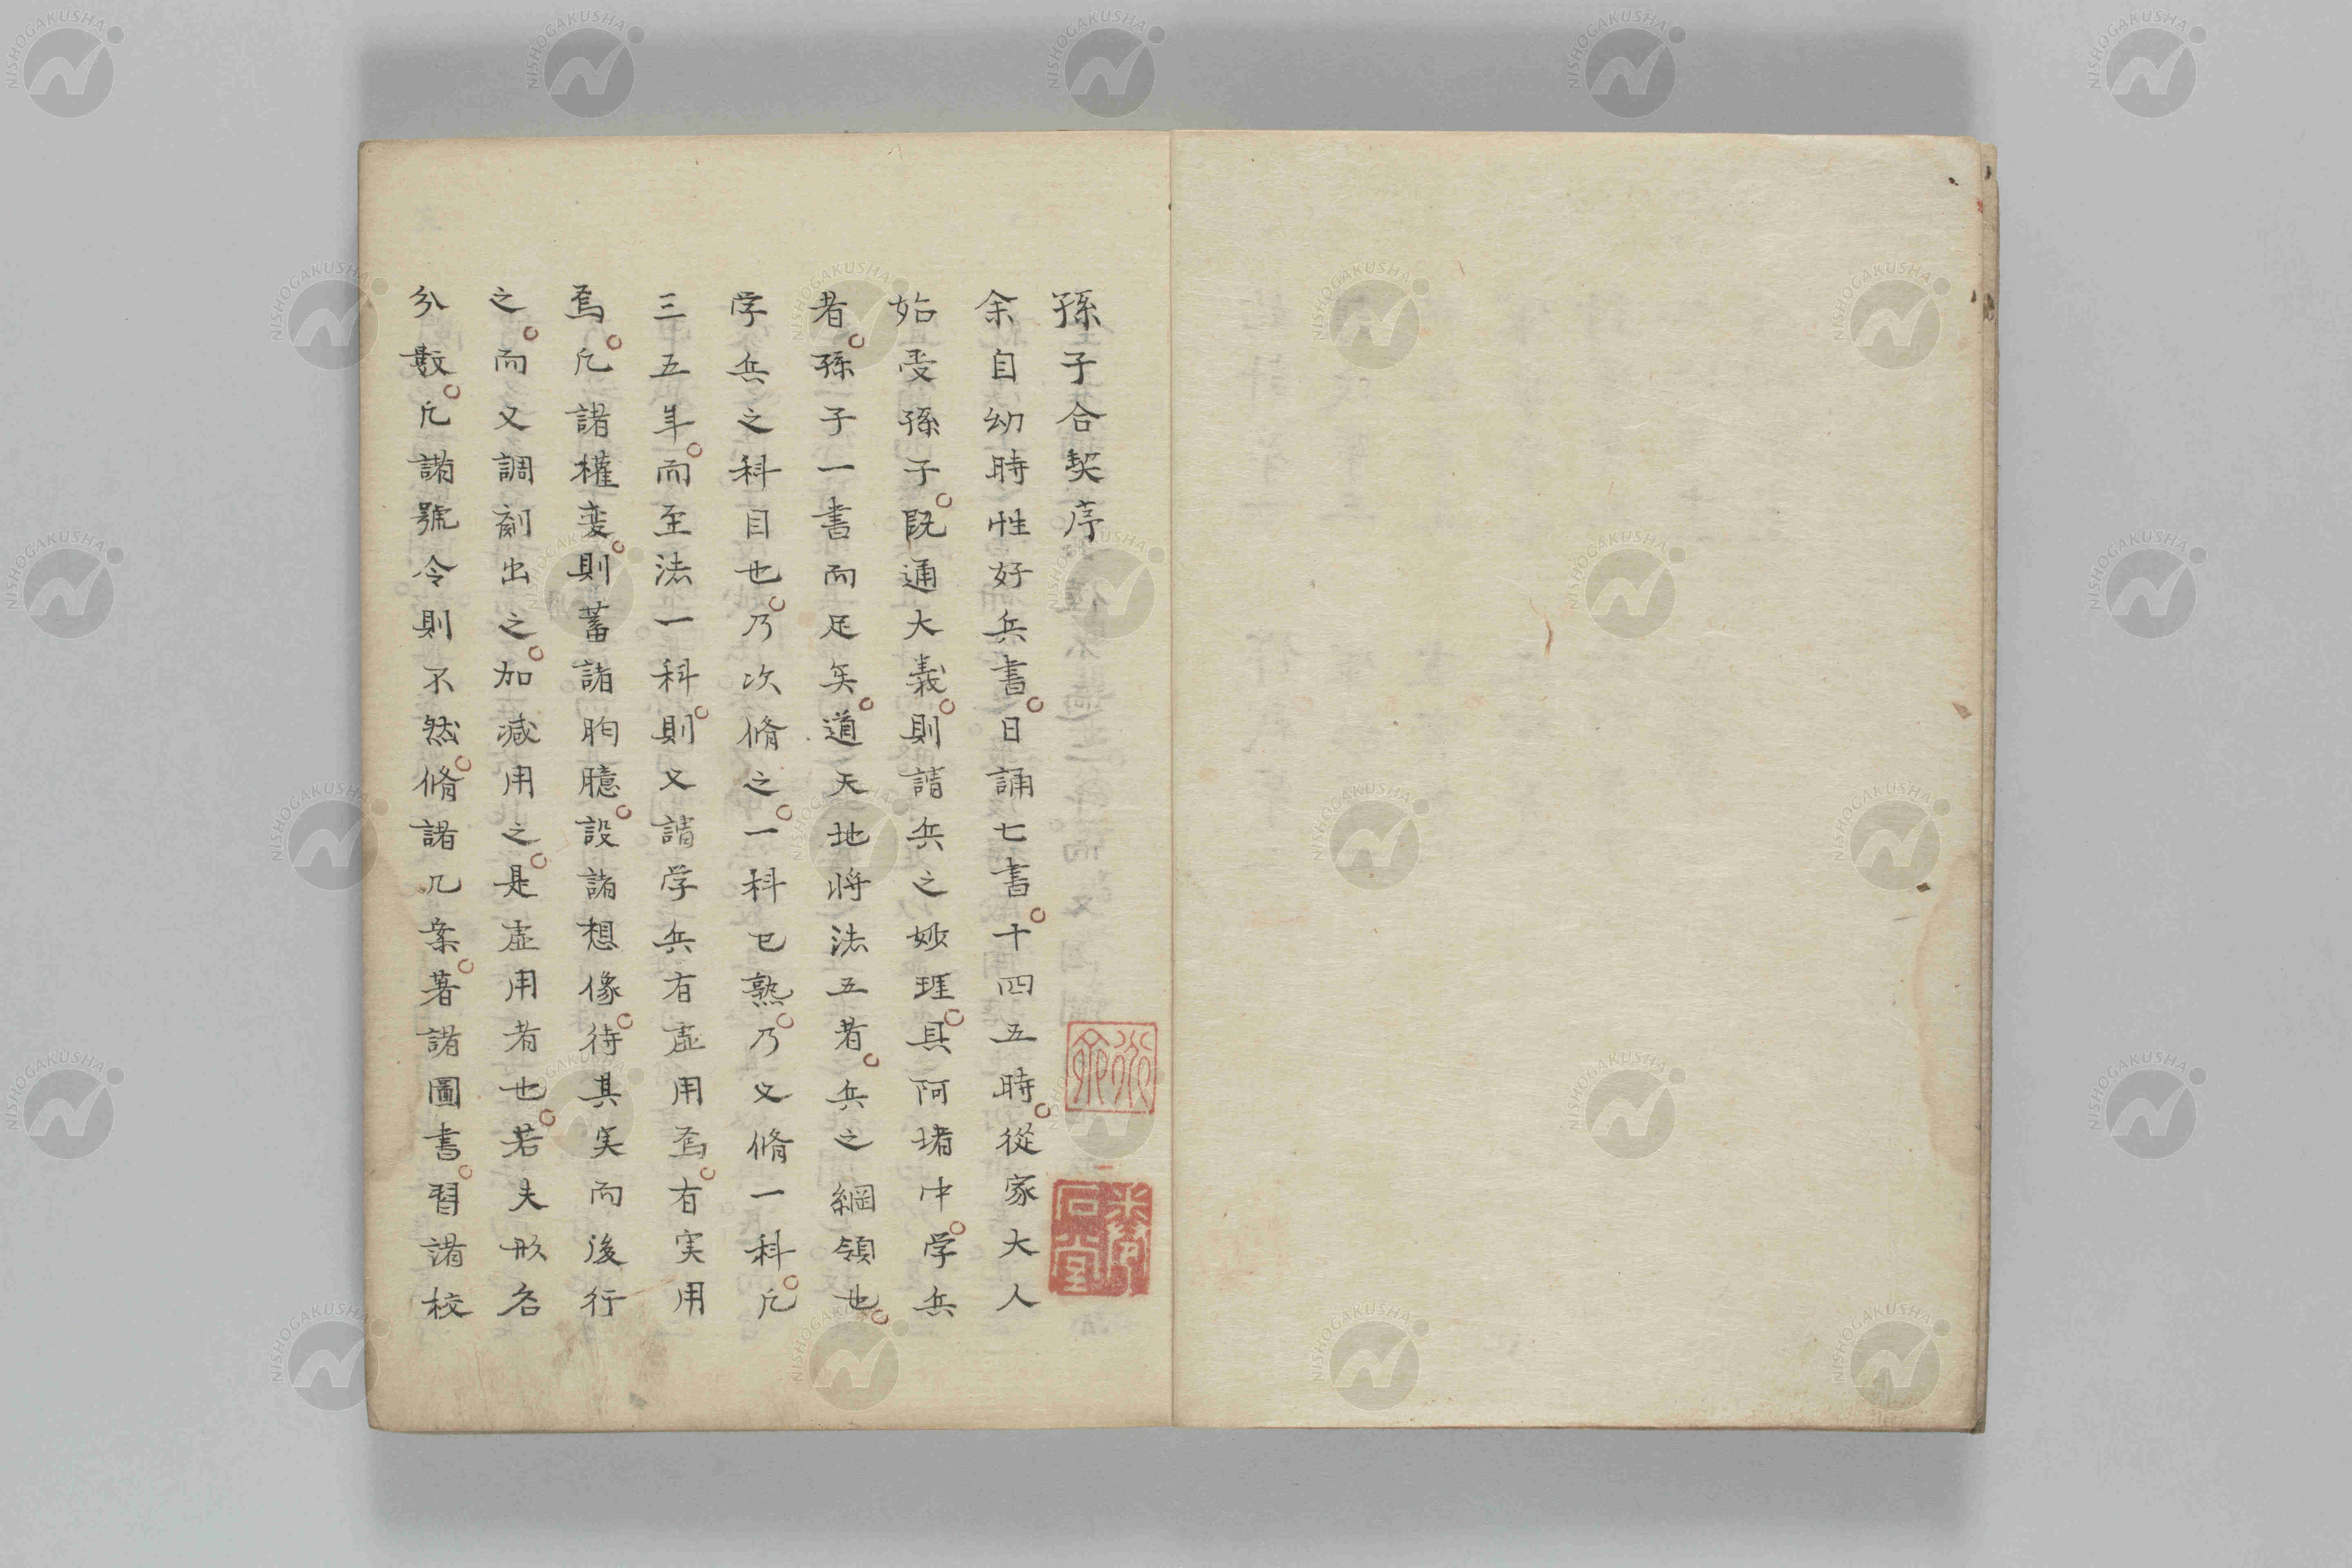 孫子合契序
余自幼時性好兵書。日誦七書。十四五時。從家大人
始受孫子。既通大義。則請兵之妙理。具阿堵中。学兵
者。孫子一書而足矣。道天地将法五者。兵之綱領也。
学兵之科目也。乃次脩之。一科已熟。乃又脩一科。凡
三五年。而至法一科。則又請学兵有虚用焉。有実用
焉。凡諸權変。則蓄諸胸臆。設諸想像。待其実而後行
之。而又調剤出之。加减用之。是虚用者也。若夫形名
分數。凡諸號令則不然。脩諸几案。著諸圖書。習諸校
NISHOGAKUSHA